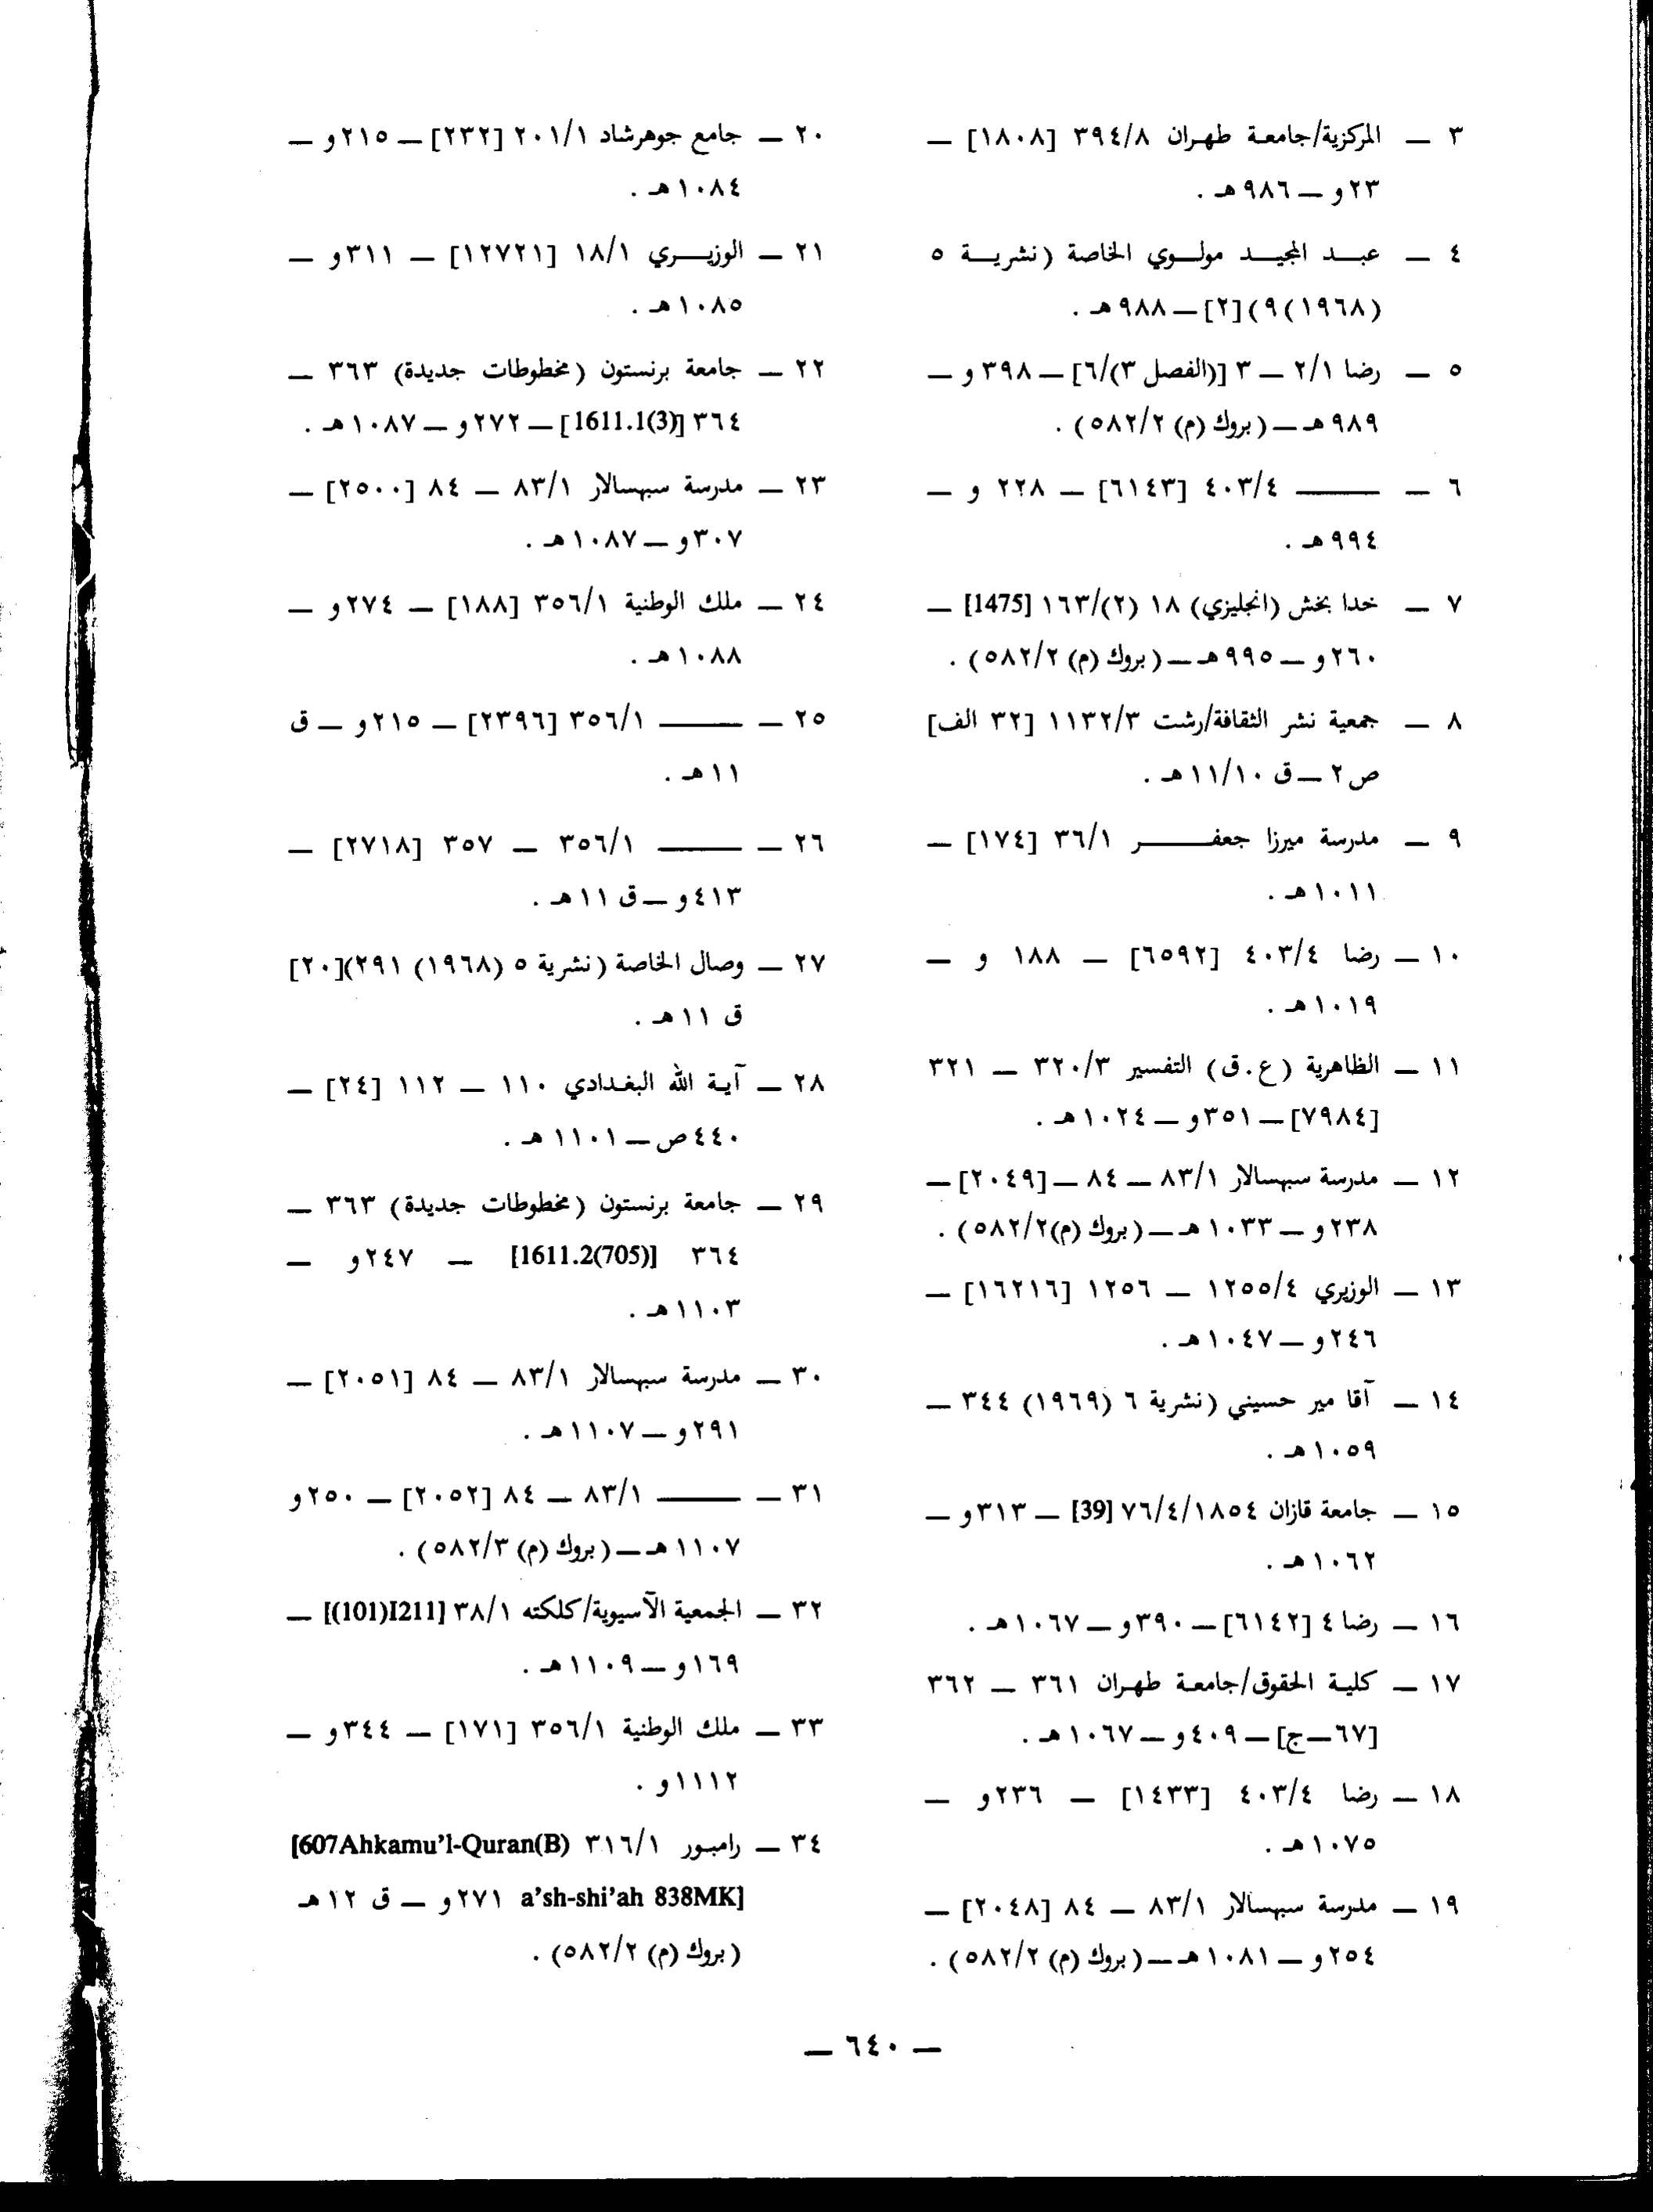 ٣ — المركزية/جامعة طهران ٣٩٤/٨ [١٨٠٨] —
٢٣و — ٩٨٦هـ .
٤ — عبد المجيد مولوي الخاصة (نشرية ٥
(١٩٦٨)٩)[٢] — ٩٨٨هـ .
٥ — رضا ٢/١ — ٣ [(الفصل ٣)/٦] — ٣٩٨و —
٩٨٩هـ — (بروك (م) ٥٨٢/٢) .
٦ — ——— ٤٠٣/٤ [٦١٤٣] — ٢٢٨ و —
٩٩٤هـ .
٧ — خدا بخش (انجليزي) ١٨ (٢)/١٦٣ [1475] —
٢٦٠و — ٩٩٥هـ — (بروك (م) ٥٨٢/٢) .
٨ — جمعية نشر الثقافة/رشت ١١٣٢/٣ [٣٢ الف]
ص٢ — ق ١١/١٠هـ .
٩ — مدرسة ميرزا جعفر ٣٦/١ [١٧٤] —
١٠١١هـ .
١٠ — رضا ٤٠٣/٤ [٦٥٩٢] — ١٨٨ و —
١٠١٩هـ .
١١ — الظاهرية (ع.ق) التفسير ٣٢٠/٣ — ٣٢١
[٧٩٨٤] — ٣٥١و — ١٠٢٤هـ .
١٢ — مدرسة سبهسالار ٨٣/١ — ٨٤ — [٢٠٤٩] —
٢٣٨و — ١٠٣٣هـ — (بروك (م)٥٨٢/٢) .
١٣ — الوزيري ١٢٥٥/٤ — ١٢٥٦ [١٦٢١٦] —
٢٤٦و — ١٠٤٧هـ .
١٤ — آقا مير حسيني (نشرية ٦ (١٩٦٩) ٣٤٤ —
١٠٥٩هـ .
١٥ — جامعة قازان ٧٦/٤/١٨٥٤ [39] — ٣١٣و —
١٠٦٢هـ .
١٦ — رضا ٤ [٦١٤٢] — ٣٩٠و — ١٠٦٧هـ .
١٧ — كلية الحقوق/جامعة طهران ٣٦١ — ٣٦٢
[٦٧—ج] — ٤٠٩و — ١٠٦٧هـ .
١٨ — رضا ٤٠٣/٤ [١٤٣٣] — ٢٣٦و —
١٠٧٥هـ .
١٩ — مدرسة سبهسالار ٨٣/١ — ٨٤ [٢٠٤٨] —
٢٥٤و — ١٠٨١هـ — (بروك (م) ٥٨٢/٢) .
٢٠ — جامع جوهرشاد ٢٠١/١ [٢٣٢] — ٢١٥و —
١٠٨٤هـ .
٢١ — الوزيري ١٨/١ [١٢٧٢١] — ٣١١و —
١٠٨٥هـ .
٢٢ — جامعة برنستون (مخطوطات جديدة) ٣٦٣ —
٣٦٤ [1611.1(3)] — ٢٧٢و — ١٠٨٧هـ .
٢٣ — مدرسة سبهسالار ٨٣/١ — ٨٤ [٢٥٠٠] —
٣٠٧و — ١٠٨٧هـ .
٢٤ — ملك الوطنية ٣٥٦/١ [١٨٨] — ٢٧٤و —
١٠٨٨هـ .
٢٥ — ——— ٣٥٦/١ [٢٣٩٦] — ٢١٥و — ق
١١هـ .
٢٦ — ——— ٣٥٦/١ — ٣٥٧ [٢٧١٨] —
٤١٣و — ق ١١هـ .
٢٧ — وصال الخاصة (نشرية ٥ (١٩٦٨) ٢٩١)[٢٠]
ق ١١هـ .
٢٨ — آية الله البغدادي ١١٠ — ١١٢ [٢٤] —
٤٤٠ص — ١١٠١هـ .
٢٩ — جامعة برنستون (مخطوطات جديدة) ٣٦٣ —
٣٦٤ [1611.2(705)] — ٢٤٧و —
١١٠٣هـ .
٣٠ — مدرسة سبهسالار ٨٣/١ — ٨٤ [٢٠٥١] —
٢٩١و — ١١٠٧هـ .
٣١ — ——— ٨٣/١ — ٨٤ [٢٠٥٢] — ٢٥٠و
١١٠٧هـ — (بروك (م) ٥٨٢/٣) .
٣٢ — الجمعية الآسيوية/كلكته ٣٨/١ [(101)I211)] —
١٦٩و — ١١٠٩هـ .
٣٣ — ملك الوطنية ٣٥٦/١ [١٧١] — ٣٤٤و —
١١١٢و .
٣٤ — رامبور ٣١٦/١ [607Ahkamu'l-Quran(B)
a'sh-shi'ah 838MK] ٢٧١و — ق ١٢هـ
(بروك (م) ٥٨٢/٢) .
— ٦٤٠ —